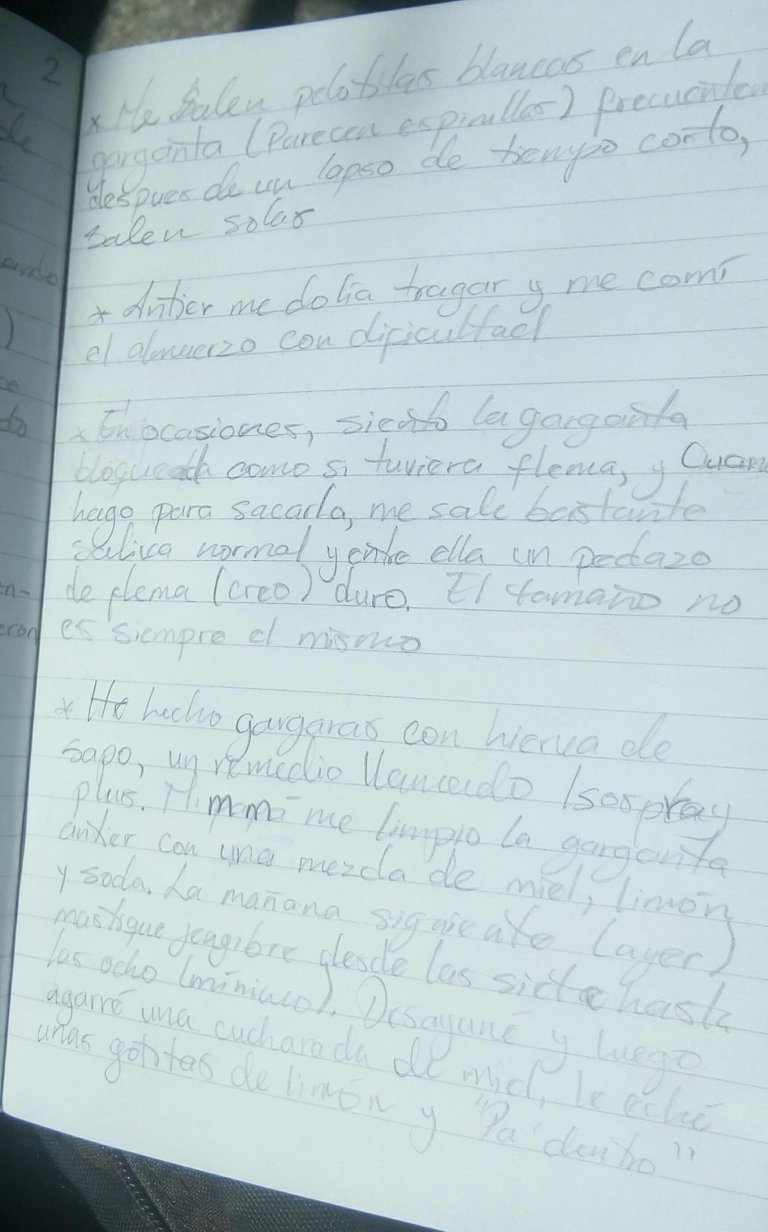 2
* Me salen pelotitas blancas en la
garganta (Parecen espinillas) frecuentem
despues de un lapso de tiempo corto,
salen solas
* Antier me dolía tragar y me comí
el almuerzo con dificultad
* En ocasiones, siento la garganta
bloqueada como si tuviera flema, y Cuan
hago para sacarla, me sale bastante
saliva normal y entre ella un pedazo
de flema (creo) duro. El tamaño no
es siempre el mismo
* He hecho gargaras con hierva de
sapo, un remedio llamado Isospray
plus. Mi mamá me limpio la garganta
antier con una mezcla de miel, limón
y soda. La mañana siguiente (ayer)
mastique jengibre desde las siete hasta
las ocho (mínimo). Desayuné y luego
agarré una cucharada de miel, le eché
unas gotitas de limón y "Pa' dentro"